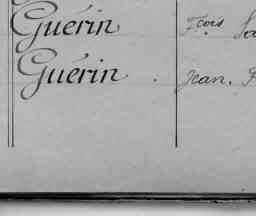 Guérin F.cois
Guérin . Jean.